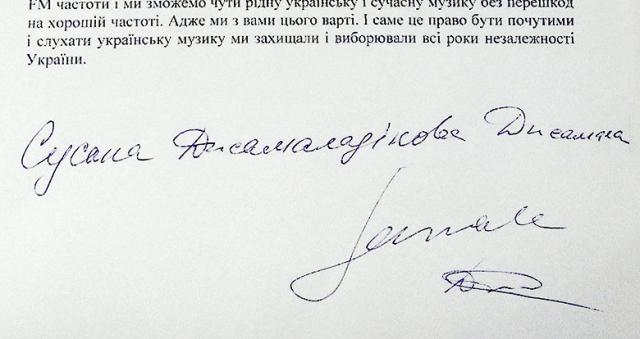 FM частоти і ми зможемо чути рідну українську і сучасну музику без перешкод
на хорошій частоті. Адже ми з вами цього варті. І саме це право бути почутими
і слухати українську музику ми захищали і виборювали всі роки незалежності
України.
Сусана Джамаладінова Джамала